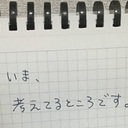 いま、
考えてるところです。